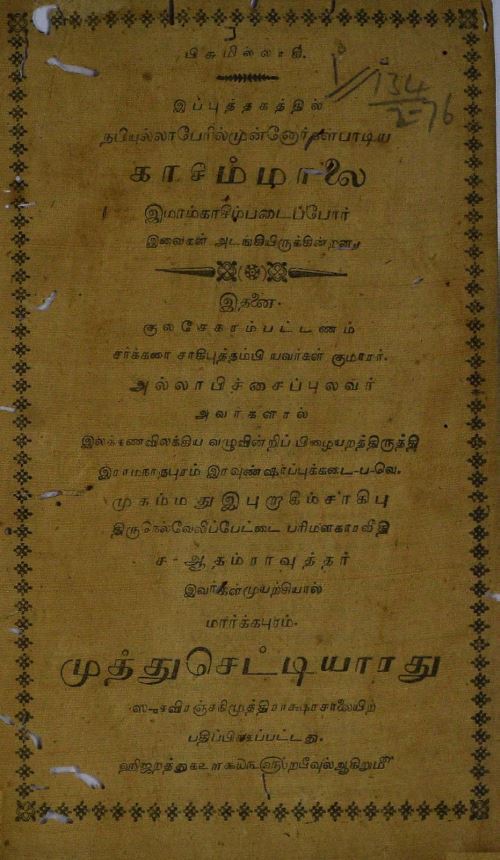 பிசுமில்லாகி.
134
2-76
இப்புத்தகத்தில்
நபியுல்லாபேரில்முன்னோர்கள்பாடிய
காசிம்மாலை
இமாம்காசிம்படைப்போர்
இவைகள் அடங்கியிருக்கின்றன.
இதனை.
குலசேகரம்பட்டணம்
சர்க்கரை சாகிபுத்தம்பி யவர்கள் குமாரர்.
அல்லாபிச்சைப்புலவர்
அவர்களால்
இலக்கணவிலக்கிய வழுவின்றிப் பிழையறத்திருத்தி
இராமநாதபுரம் ப-வெ.
முகம்மதுஇபுறாகிம்சாகிபு
திருநெல்வேலிப்பேட்டை பரிமளகாரவீதி
ச - ஆதம்ராவுத்தர்
இவர்கள்முயற்சியால்
மார்க்கபுரம்.
முத்துசெட்டியாரது
பதிப்பிக்கப்பட்டது.